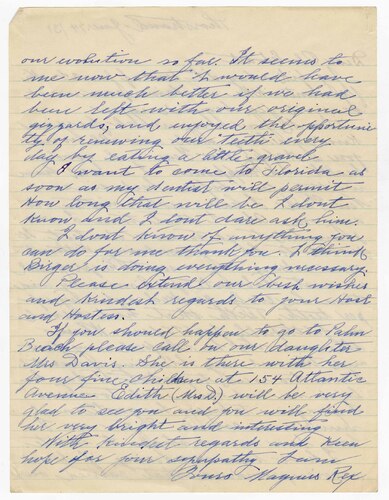 our evolution so far. It seems to
me now that I would have
been much better if we had
been left with our original
gizzards, and enjoyed the opportuni
ty of renewing our teeth every
day by eating a little gravel
I want to come to Florida as
soon as my dentist will permit
How long that will be I dont
know and I dont dare ask him.
I dont know of anything you
can do for me thank you. I think
Birger is doing everything necessary.
Please extend our best wishes
and kindest regards to your Host
and Hostess.
If you should happen to go to Palm
Beach please call on our daughter
Mrs Davis. She is there with her
four fine children at 154 Atlantic
Avenue Edith (Mrs D) will be very
glad to see you and you will find
her very bright and interesting
With kindest regards and keen
hope for your sympathy I am
Yours Magnus Rex